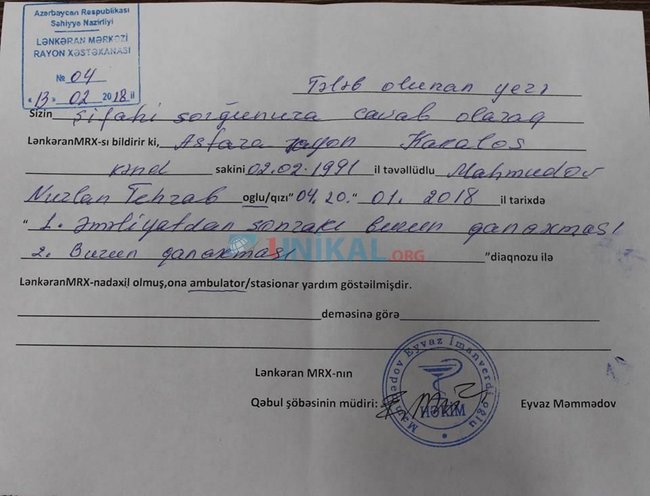 Azərbaycan Respublikası
Səhiyyə Nazirliyi
LƏNKƏRAN MƏRKƏZİ
RAYON XƏSTƏXANASI
№ 04
"13" 02 2018 il
Tələb olunan yerə
Sizin şifahi sorğunuza cavab olaraq
LənkəranMRX-sı bildirir ki, Astara rayon Kakalos
kənd sakini 02.02.1991 il təvəllüdlu Mahmudov
Nurlan Tehrab oglu/qızı "04.20." 01.2018 il tarixdə
" 1. Əməliyatdan sonrakı burun qanaxması
2. Burun qanaxması "diaqnozu ilə
UNIKAL.ORG
LənkəranMRX-nadaxil olmuş,ona ambulator/stasionar yardım göstəilmişdir.
deməsinə görə
Lənkəran MRX-nın
Qəbul şöbəsinin müdiri: Eyvaz Məmmədov
Məmmədov Eyvaz İmanverdi oğlu
HƏKİM